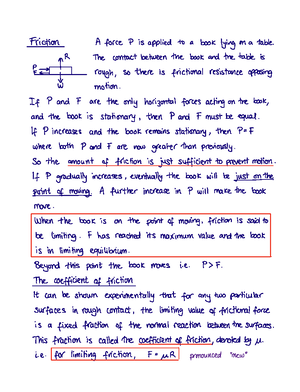 Friction
A force P is applied to a book lying on a table.
R
The contact between the book and the table is
P
rough, so there is frictional resistance opposing
W
motion.
If P and F are the only horizontal forces acting on the book,
and the book is stationary, then P and F must be equal.
If P increases and the book remains stationary, then P=F
where both P and F are now greater than previously.
So the amount of friction is just sufficient to prevent motion.
If P gradually increases, eventually the book will be just on the
point of moving. A further increase in P will make the book
move.
When the book is on the point of moving, friction is said to
be limiting. F has reached its maximum value and the book
is in limiting equilibrium.
Beyond this point the book moves i.e. P>F.
The coefficient of friction
It can be shown experimentally that for any two particular
surfaces in rough contact, the limiting value of frictional force
is a fixed fraction of the normal reaction between the surfaces.
This fraction is called the coefficient of friction, denoted by μ.
i.e. for limiting friction, F = μR pronounced "mew"